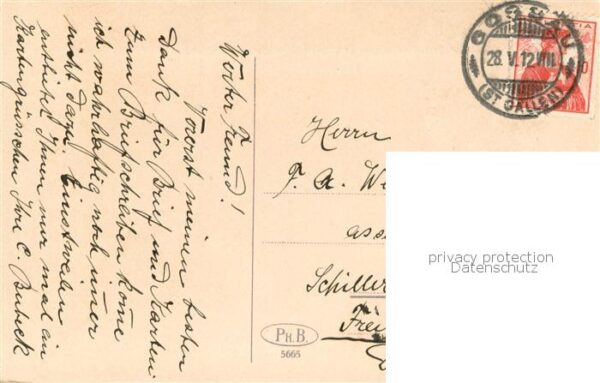 Werter Freund!
Vorerst meinen besten
Dank für Brief und Karten.
Zum Briefschreiben kome
ich wahrhaftig noch imer
nicht dazu. Einstweilen
entbietet Ihnen nur mal ein
Kartengrüsschen Ihre C. Bubeck
GOSSAU
28. V. 12 VIII
(ST GALLEN)
Herrn
F. A. We
ass
Schiller
Frei
PH.B.
5665
privacy protection
Datenschutz